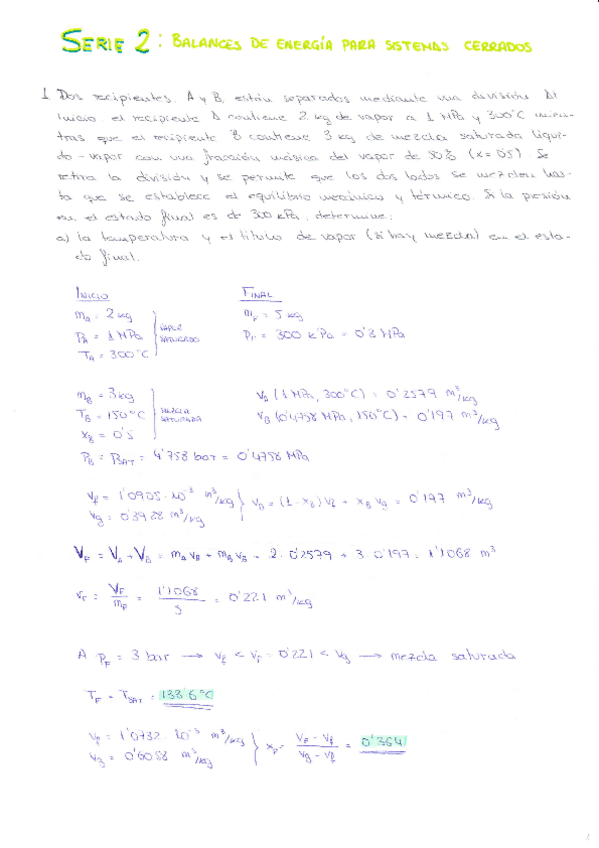 SERIE 2: BALANCES DE ENERGÍA PARA SISTEMAS CERRADOS
1 Dos recipientes, A y B, están separados mediante una división. Al
inicio el recipiente A contiene 2 kg de vapor a 1 MPa y 300°C mien-
tras que el recipiente B contiene 3 kg de mezcla saturada líqui-
do-vapor con una fracción másica del vapor de 50% (x=0'5) Se
retira la división y se permite que los dos lados se mezclen has-
ta que se establece el equilibrio mecánico y térmico. Si la presión
en el estado final es de 300 kPa, determine:
a) la temperatura y el título de vapor (si hay mezcla) en el esta-
do final.
INICIO FINAL
mA = 2 kg mF = 5 kg
PA = 1 MPa VAPOR SATURADO PF = 300 kPa = 0'3 MPa
TA = 300°C
mB = 3 kg vA (1 MPa, 300°C) = 0'2579 m³/kg
TB = 150°C MEZCLA SATURADA vB (0'4758 MPa, 150°C) = 0'197 m³/kg
xB = 0'5
PB = PSAT = 4'758 bar = 0'4758 MPa
vf = 1'0905·10⁻³ m³/kg } vB = (1-xB) vf + xB vg = 0'197 m³/kg
vg = 0'3928 m³/kg
VF = VA + VB = mA vA + mB vB = 2·0'2579 + 3·0'197 = 1'1068 m³
vF = VF/mF = 1'1068/5 = 0'221 m³/kg
A PF = 3 bar → vf < vF = 0'221 < vg → mezcla saturada
TF = TSAT = 133'6°C
vf = 1'0732·10⁻³ m³/kg } xF = (vF - vf)/(vg - vf) = 0'364
vg = 0'6058 m³/kg